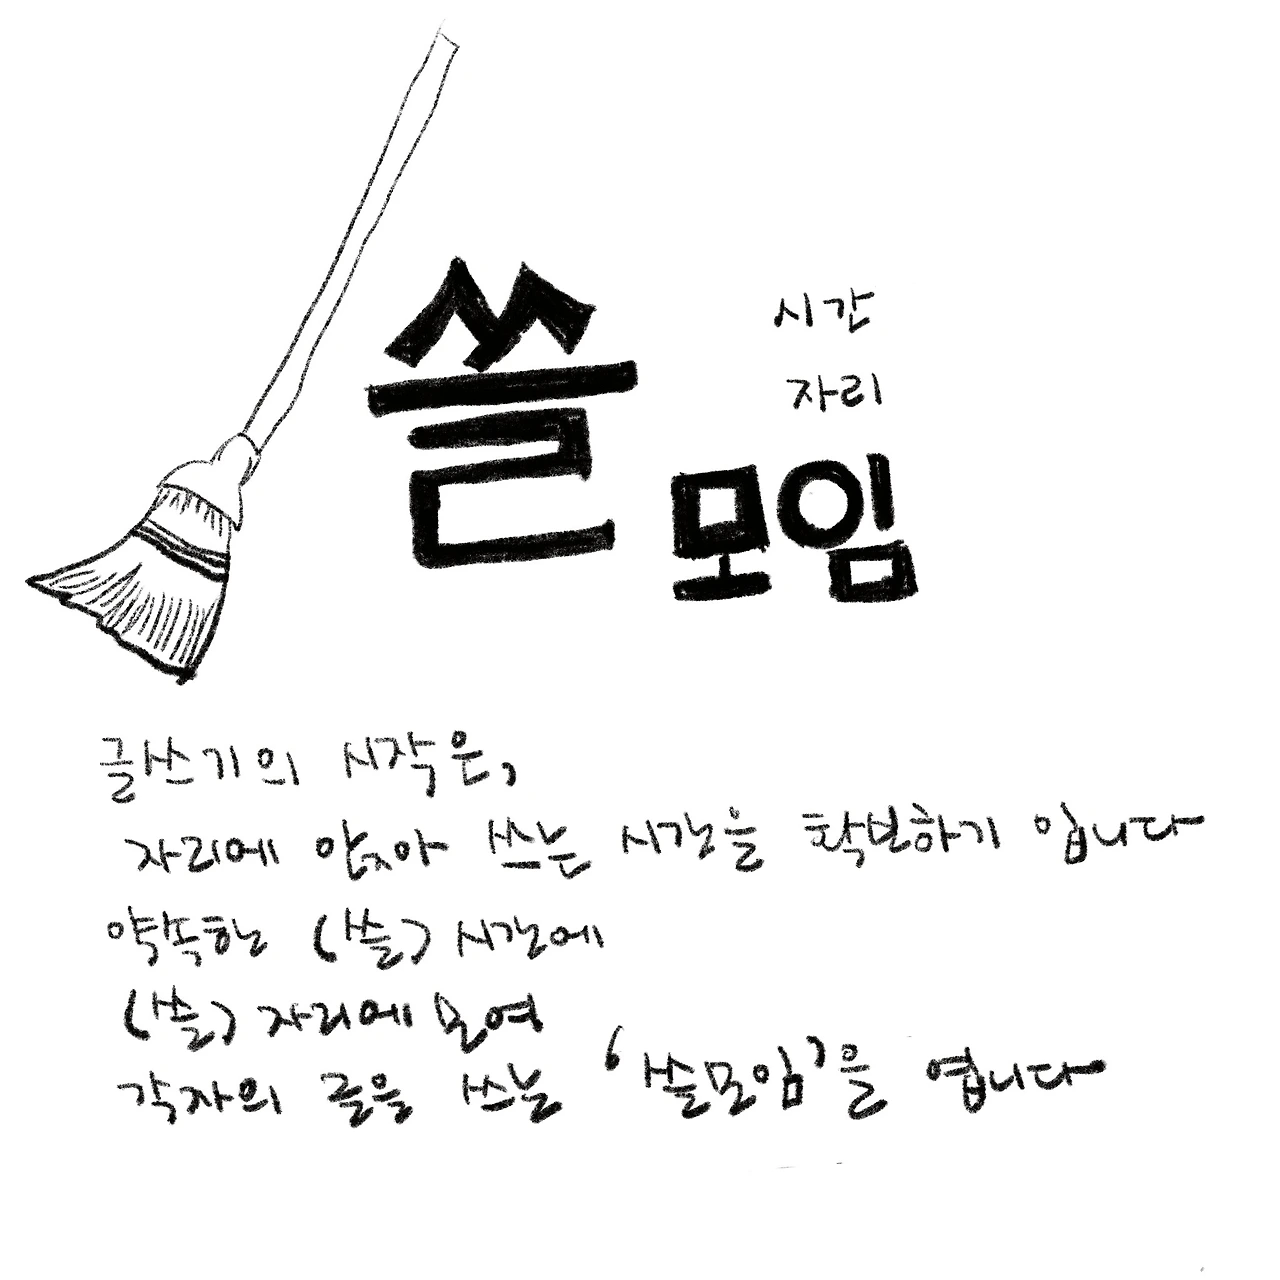 쓸
시간
자리
모임
글쓰기의 시작은,
자리에 앉아 쓰는 시간을 확보하기 입니다
약속한 (쓸) 시간에
(쓸) 자리에 모여
각자의 글을 쓰는 '쓸모임'을 엽니다